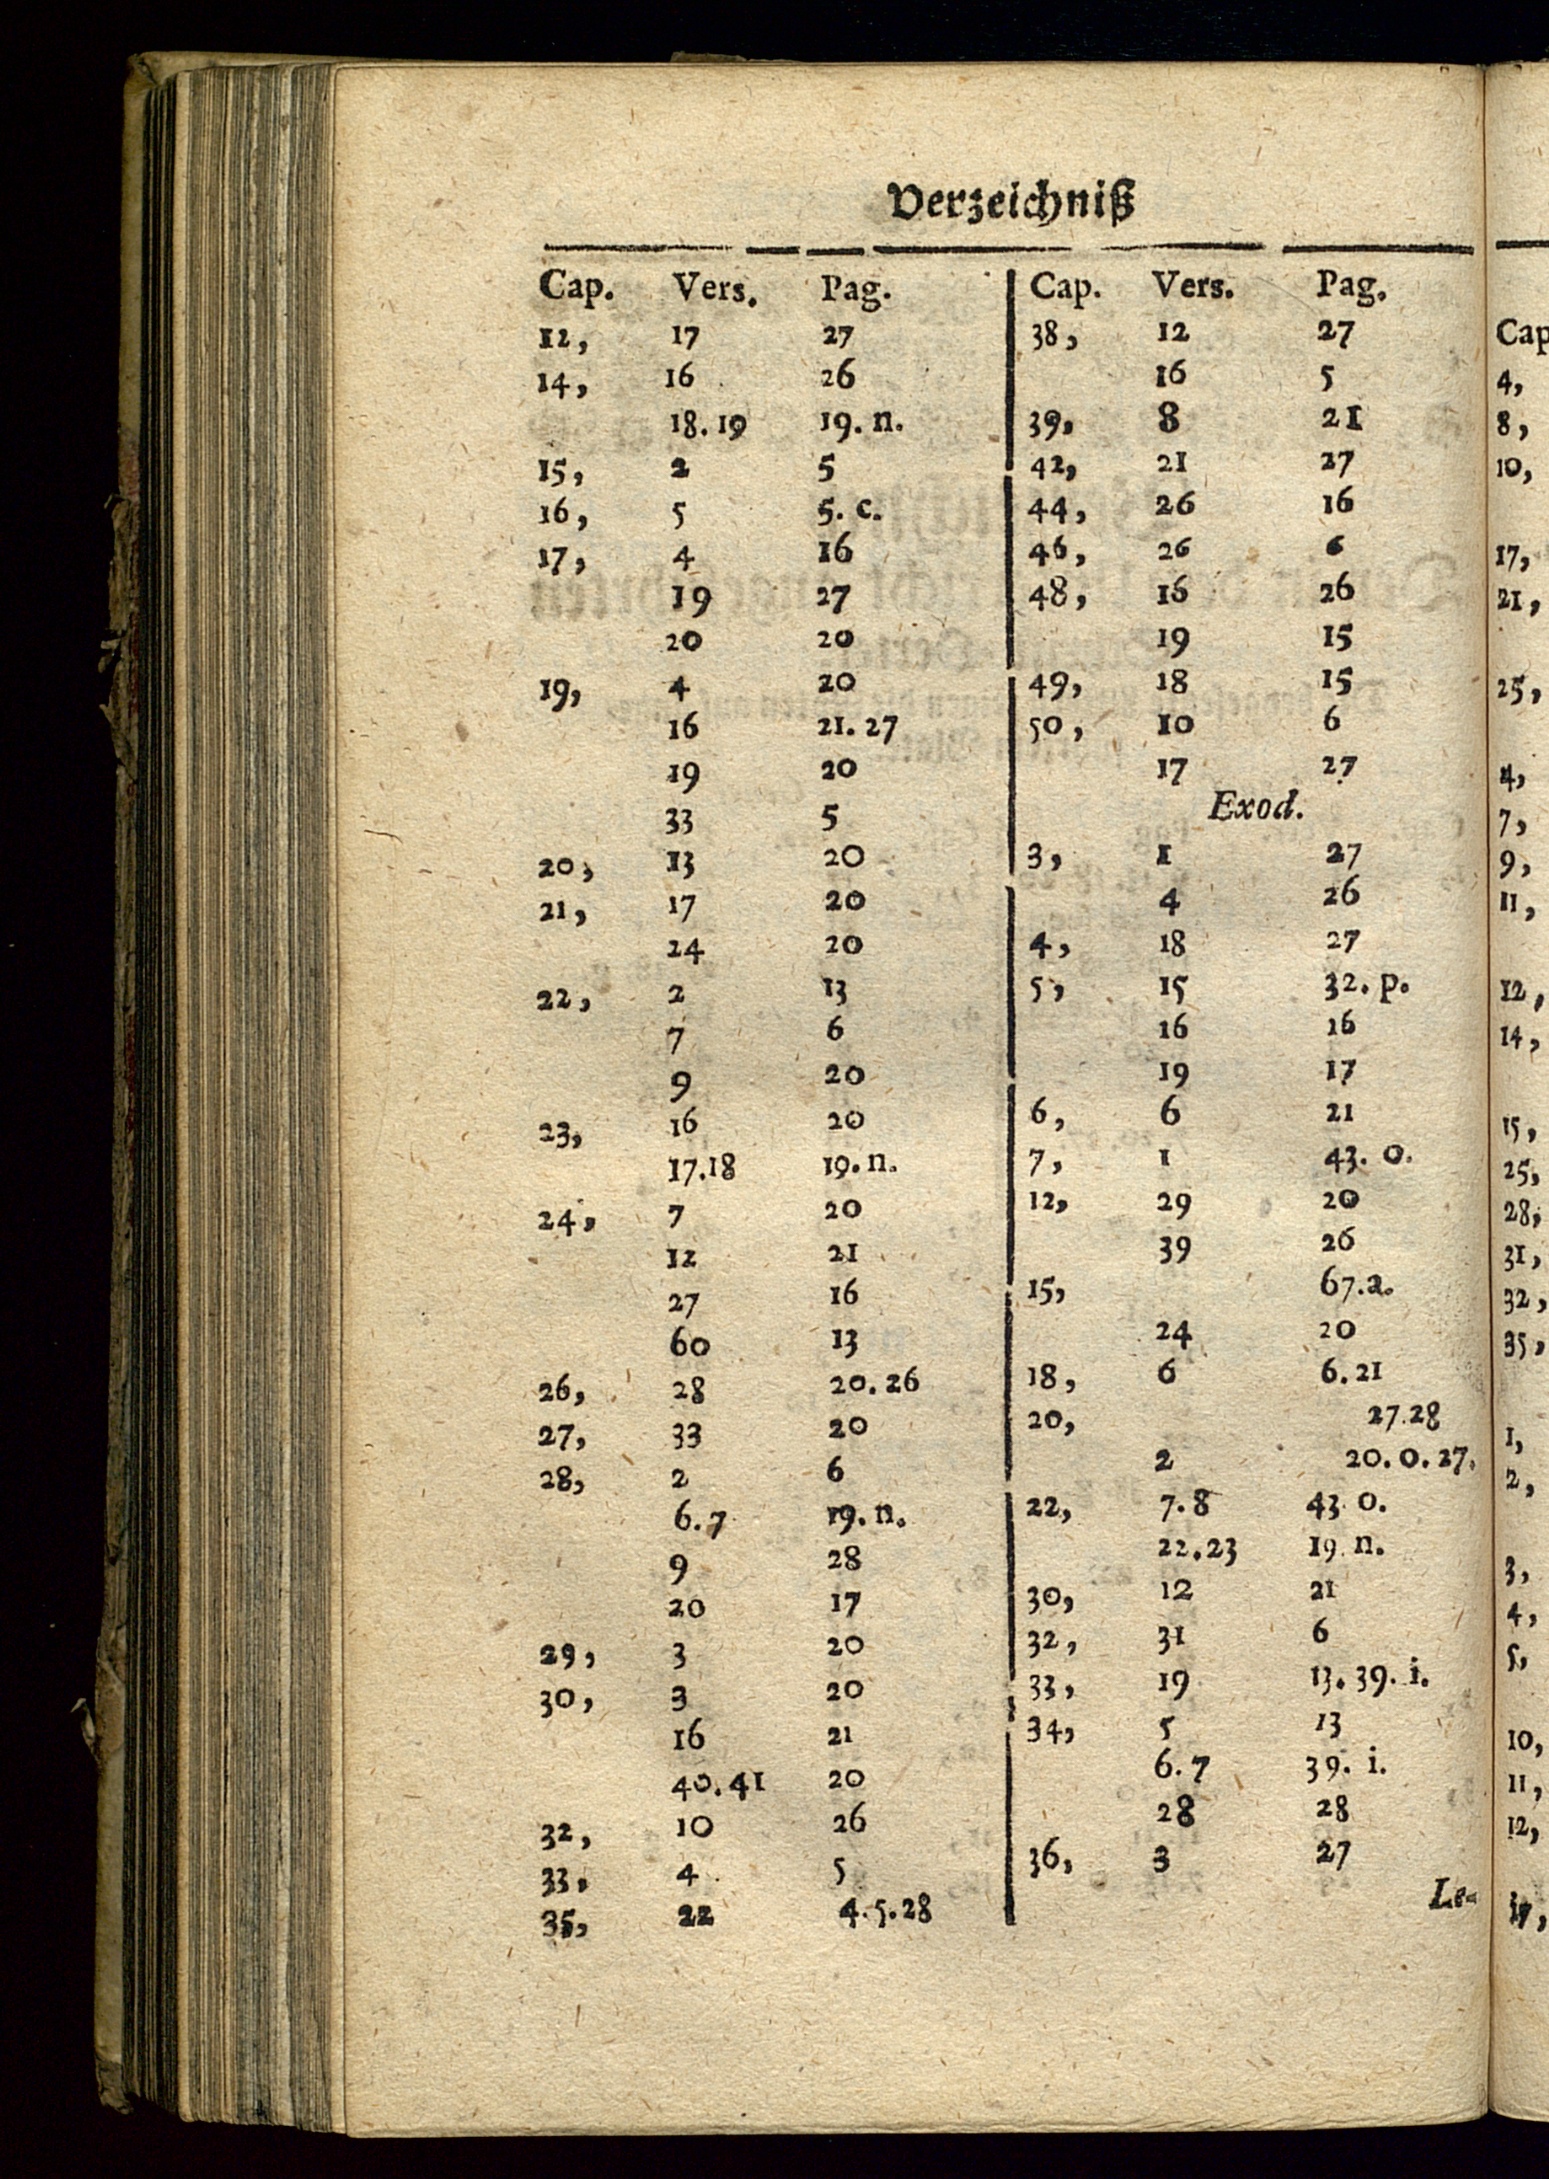 Verzeichniß
Cap. Vers. Pag.
12, 17 27
14, 16 26
18.19 19. n.
15, 2 5
16, 5 5. c.
17, 4 16
19 27
20 20
19, 4 20
16 21. 27
19 20
33 5
20, 13 20
21, 17 20
24 20
22, 2 13
7 6
9 20
23, 16 20
17.18 19. n.
24, 7 20
12 21
27 16
60 13
26, 28 20. 26
27, 33 20
28, 2 6
6. 7 19. n.
9 28
20 17
29, 3 20
30, 3 20
16 21
40. 41 20
32, 10 26
33, 4 5
35, 22 4. 5. 28
Cap. Vers. Pag.
38, 12 27
16 5
39, 8 21
42, 21 27
44, 26 16
46, 26 6
48, 16 26
19 15
49, 18 15
50, 10 6
17 27
Exod.
3, 1 27
4 26
4, 18 27
5, 15 32. p.
16 16
19 17
6, 6 21
7, 1 43. o.
12, 29 20
39 26
15, 67. a.
24 20
18, 6 6. 21
20, 27. 28
2 20. o. 27.
22, 7. 8 43. o.
22. 23 19. n.
30, 12 21
32, 31 6
33, 19 13. 39. i.
34, 5 13
6. 7 39. i.
28 28
36, 3 27
Le-
Cap
4,
8,
10,
17,
21,
25,
4,
7,
9,
11,
12,
14,
15,
25,
28,
31,
32,
35,
1,
2,
3,
4,
5,
10,
11,
12,